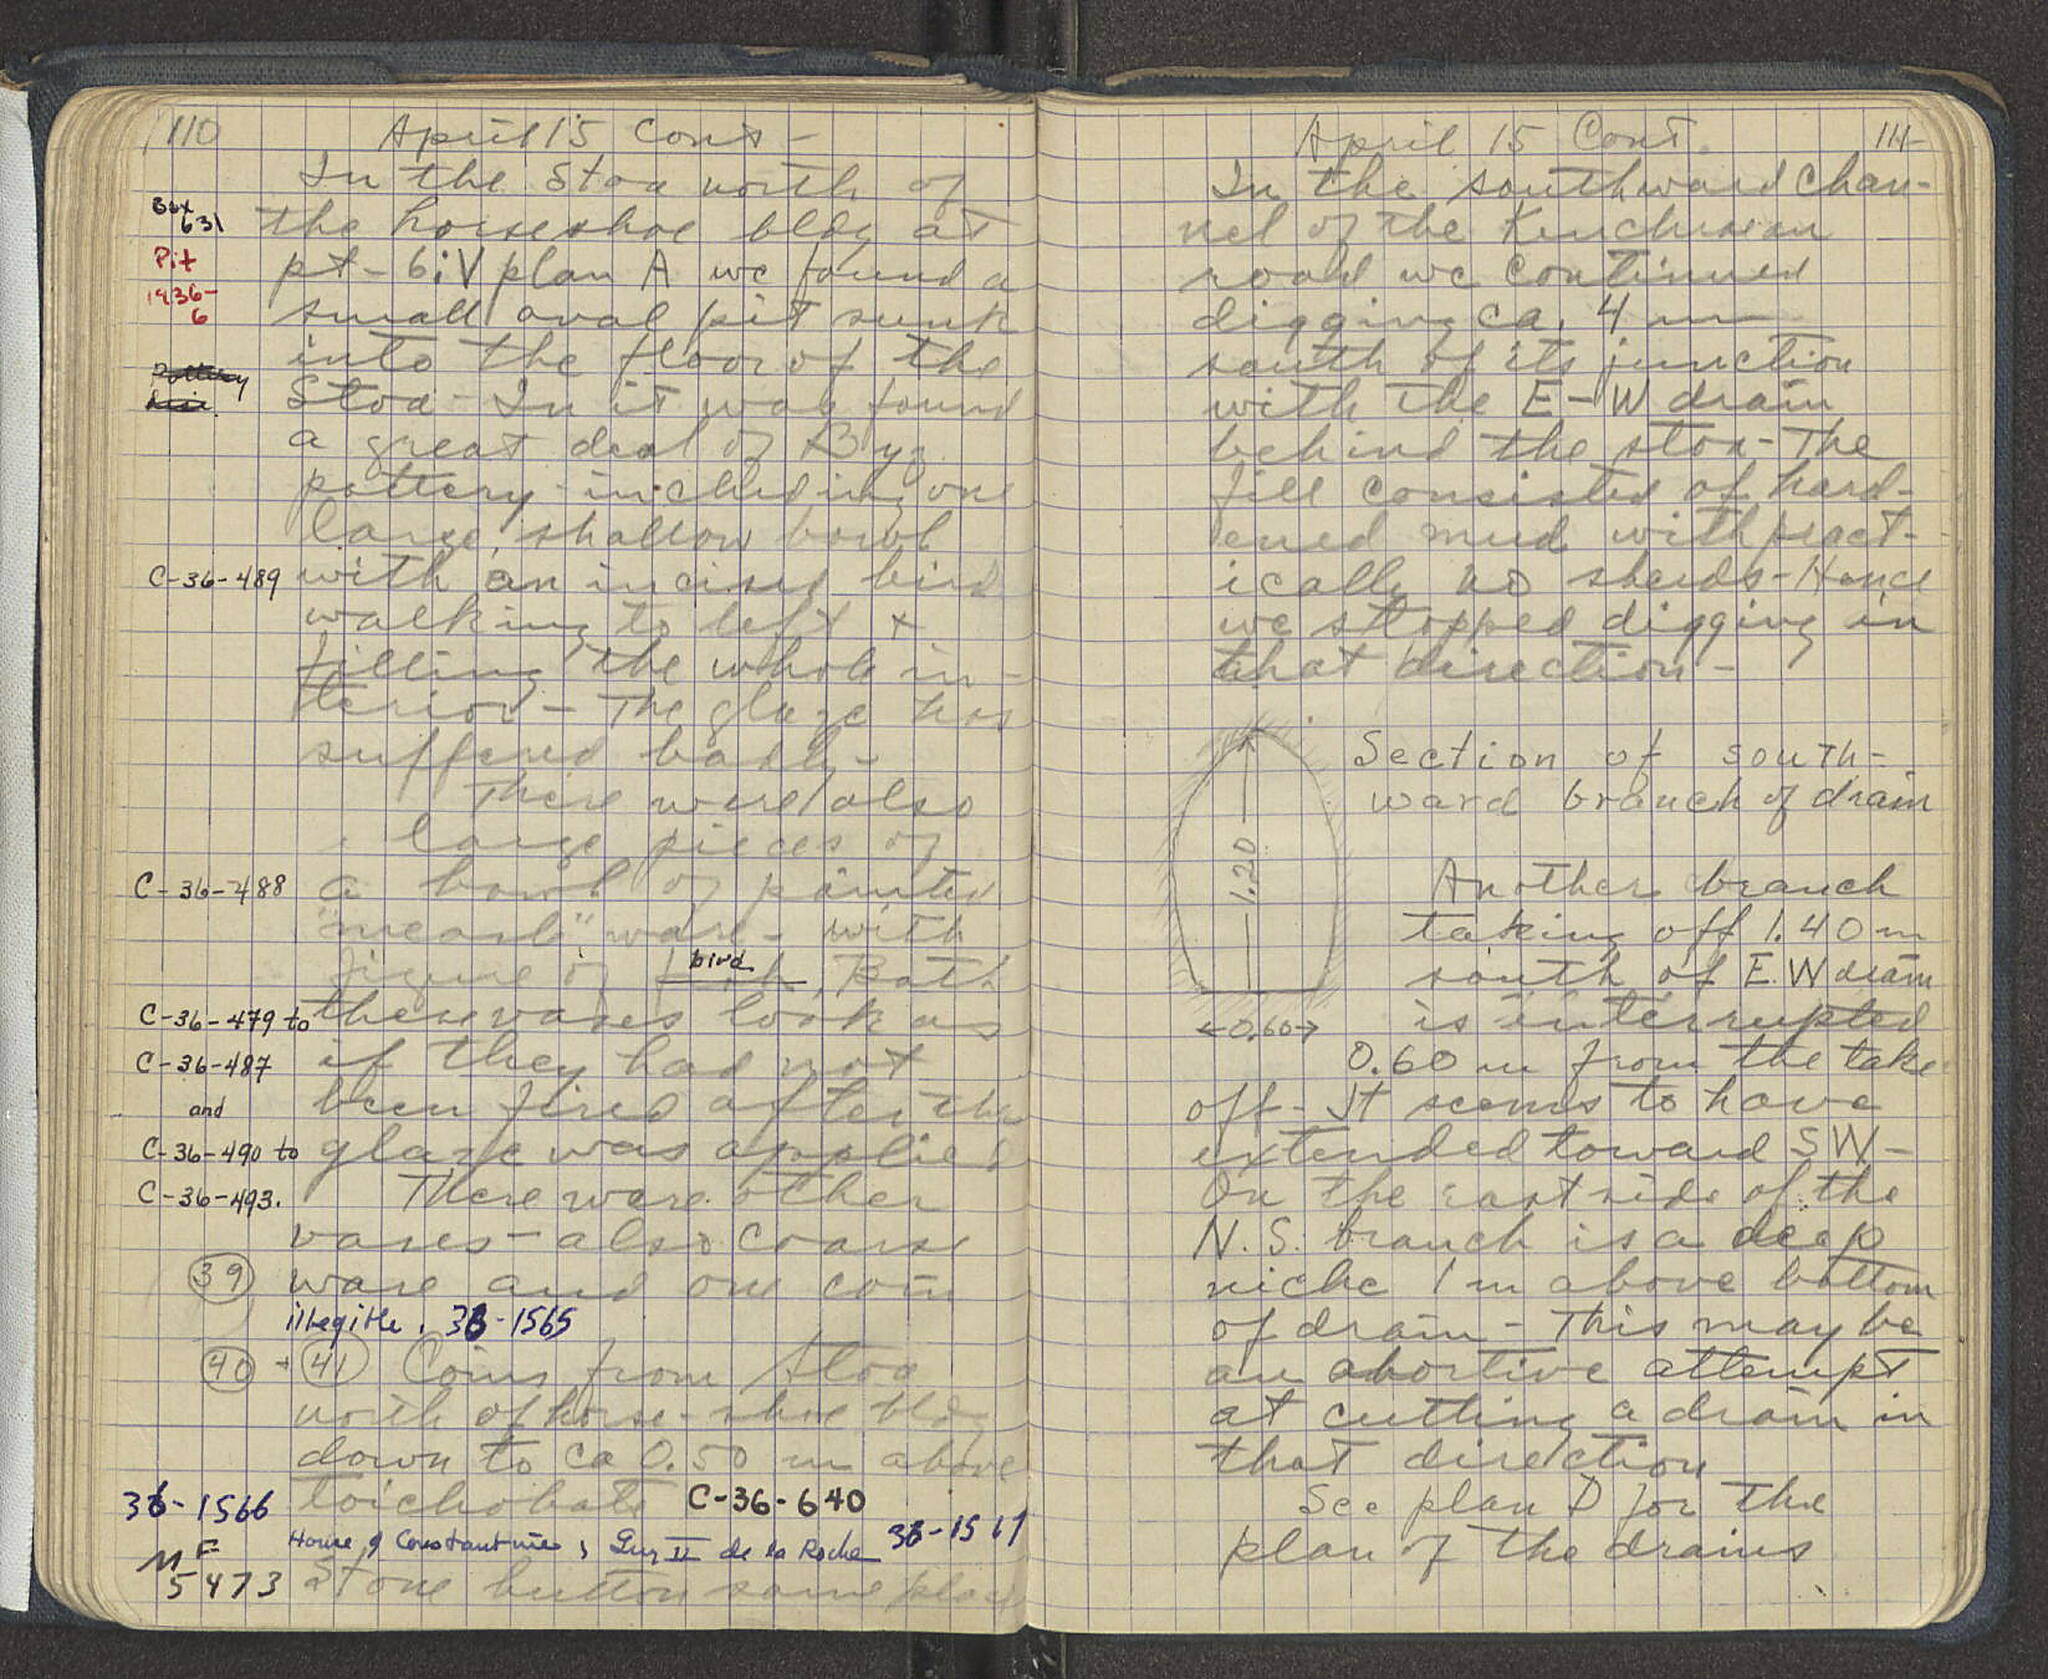 110 April 15 Cont -
In the Stoa north of
Box 631
the horseshoe bldg at
Pit 1936-6
pt - 6;V plan A we found a
small oval pit sunk
into the floor of the
Pottery
Stoa - In it was found
a great deal of Byz
pottery - including one
large, shallow bowl
C-36-489 with an incised bird
walking to left +
filling the whole in-
terior - The glaze has
suffered badly -
There were also
large pieces of
C-36-488 a bowl of painted
ware - with
figure of bird. Both
C-36-479 to these vases look as
C-36-487 if they had not
and been fired after the
C-36-490 to glaze was applied
C-36-493. There were other
vases - also coarse
39 ware and one coin
illegible. 36-1565
40 + 41 Coins from Stoa
north of horse-shoe bldg
down to ca 0.50 m above
36-1566 toichobate C-36-640
House of Constantine, Guy II de la Roche 36-1567
MF 5473 Stone button same place
April 15 Cont. 111
In the southward chan-
nel of the Kenchreaean
road we continued
digging ca. 4 m
south of its junction
with the E-W drain
behind the stoa - The
fill consisted of hard-
ened mud with pract-
ically no sherds - Hence
we stopped digging in
that direction -
Section of south-
ward branch of drain
1.20
0.60
Another branch
taking off 1.40 m
south of E.W drain
is interrupted
0.60 m from the take
off - It seems to have
extended toward SW -
On the east side of the
N.S. branch is a deep
niche 1 m above bottom
of drain - This may be
an abortive attempt
at cutting a drain in
that direction
See plan D for the
plan of the drains